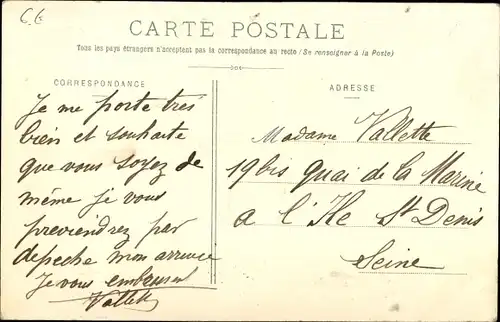 C. G
CARTE POSTALE
Tous les pays étrangers n'acceptent pas la correspondance au recto (Se renseigner à la Poste)
CORRESPONDANCE
Je me porte très
bien et souhaite
que vous soyez de
même je vous
previendrez par
depeche mon arrivee
Je vous embrassent
Vallette
ADRESSE
Madame Vallette
19 bis quai de la Marine
a l'Ile St Denis
Seine